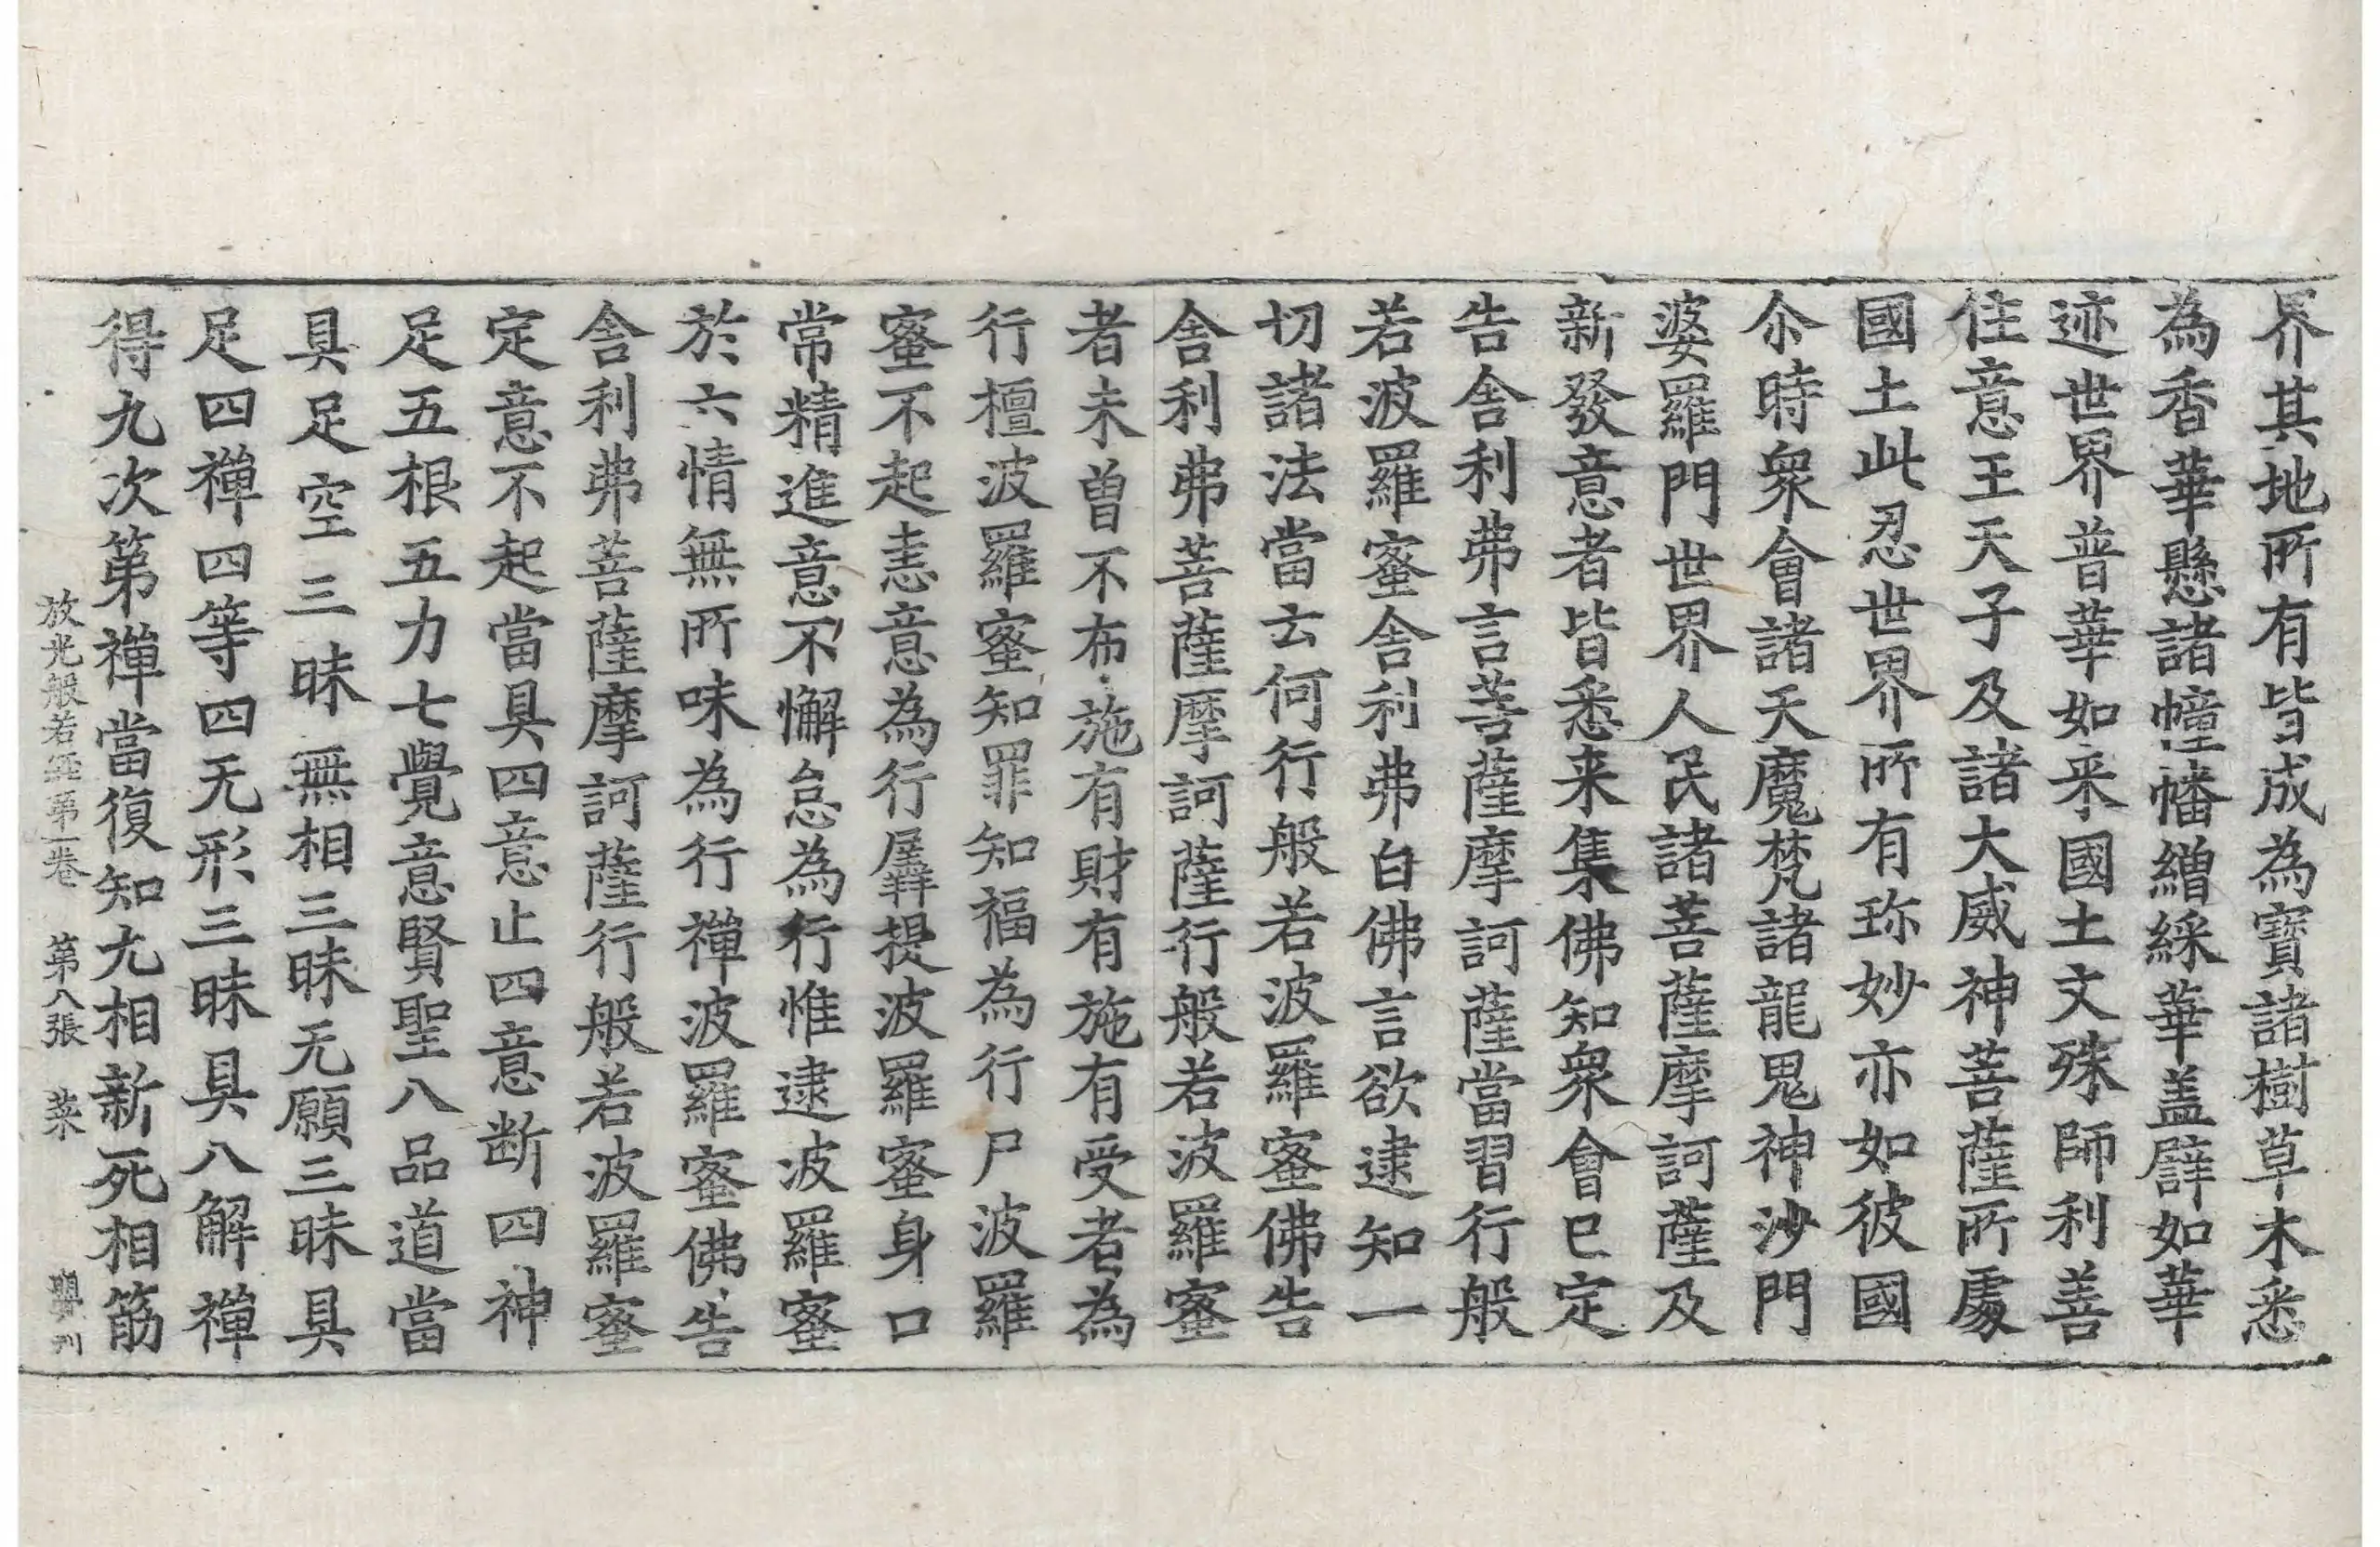 界其地所有皆成為寶諸樹草木悉
為香華懸諸幢幡繒綵華盖譬如華
迹世界普華如来國土文殊師利善
住意王天子及諸大威神菩薩所處
國土此忍世界所有珎妙亦如彼國
尒時衆會諸天魔梵諸龍鬼神沙門
婆羅門世界人民諸菩薩摩訶薩及
新發意者皆悉来集佛知衆會已定
告舍利弗言菩薩摩訶薩當習行般
若波羅蜜舍利弗白佛言欲逮知一
切諸法當云何行般若波羅蜜佛告
舍利弗菩薩摩訶薩行般若波羅蜜
者未曽不布施有財有施有受者為
行檀波羅蜜知罪知福為行尸波羅
蜜不起恚意為行羼提波羅蜜身口
常精進意不懈怠為行惟逮波羅蜜
於六情無所味為行禪波羅蜜佛告
舍利弗菩薩摩訶薩行般若波羅蜜
定意不起當具四意止四意断四神
足五根五力七覺意賢聖八品道當
具足空三昧無相三昧无願三昧具
足四禪四等四无形三昧具八解禪
得九次第禪當復知九相新死相筋
放光般若經第一卷　第八張　菜